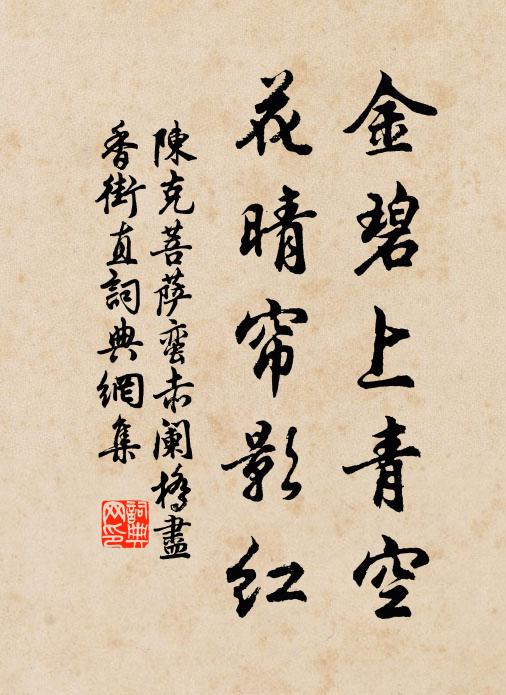 金碧上青空
花晴帘影红
陳克菩薩蛮赤阑橋盡
香街直詞典網集
詞典网印